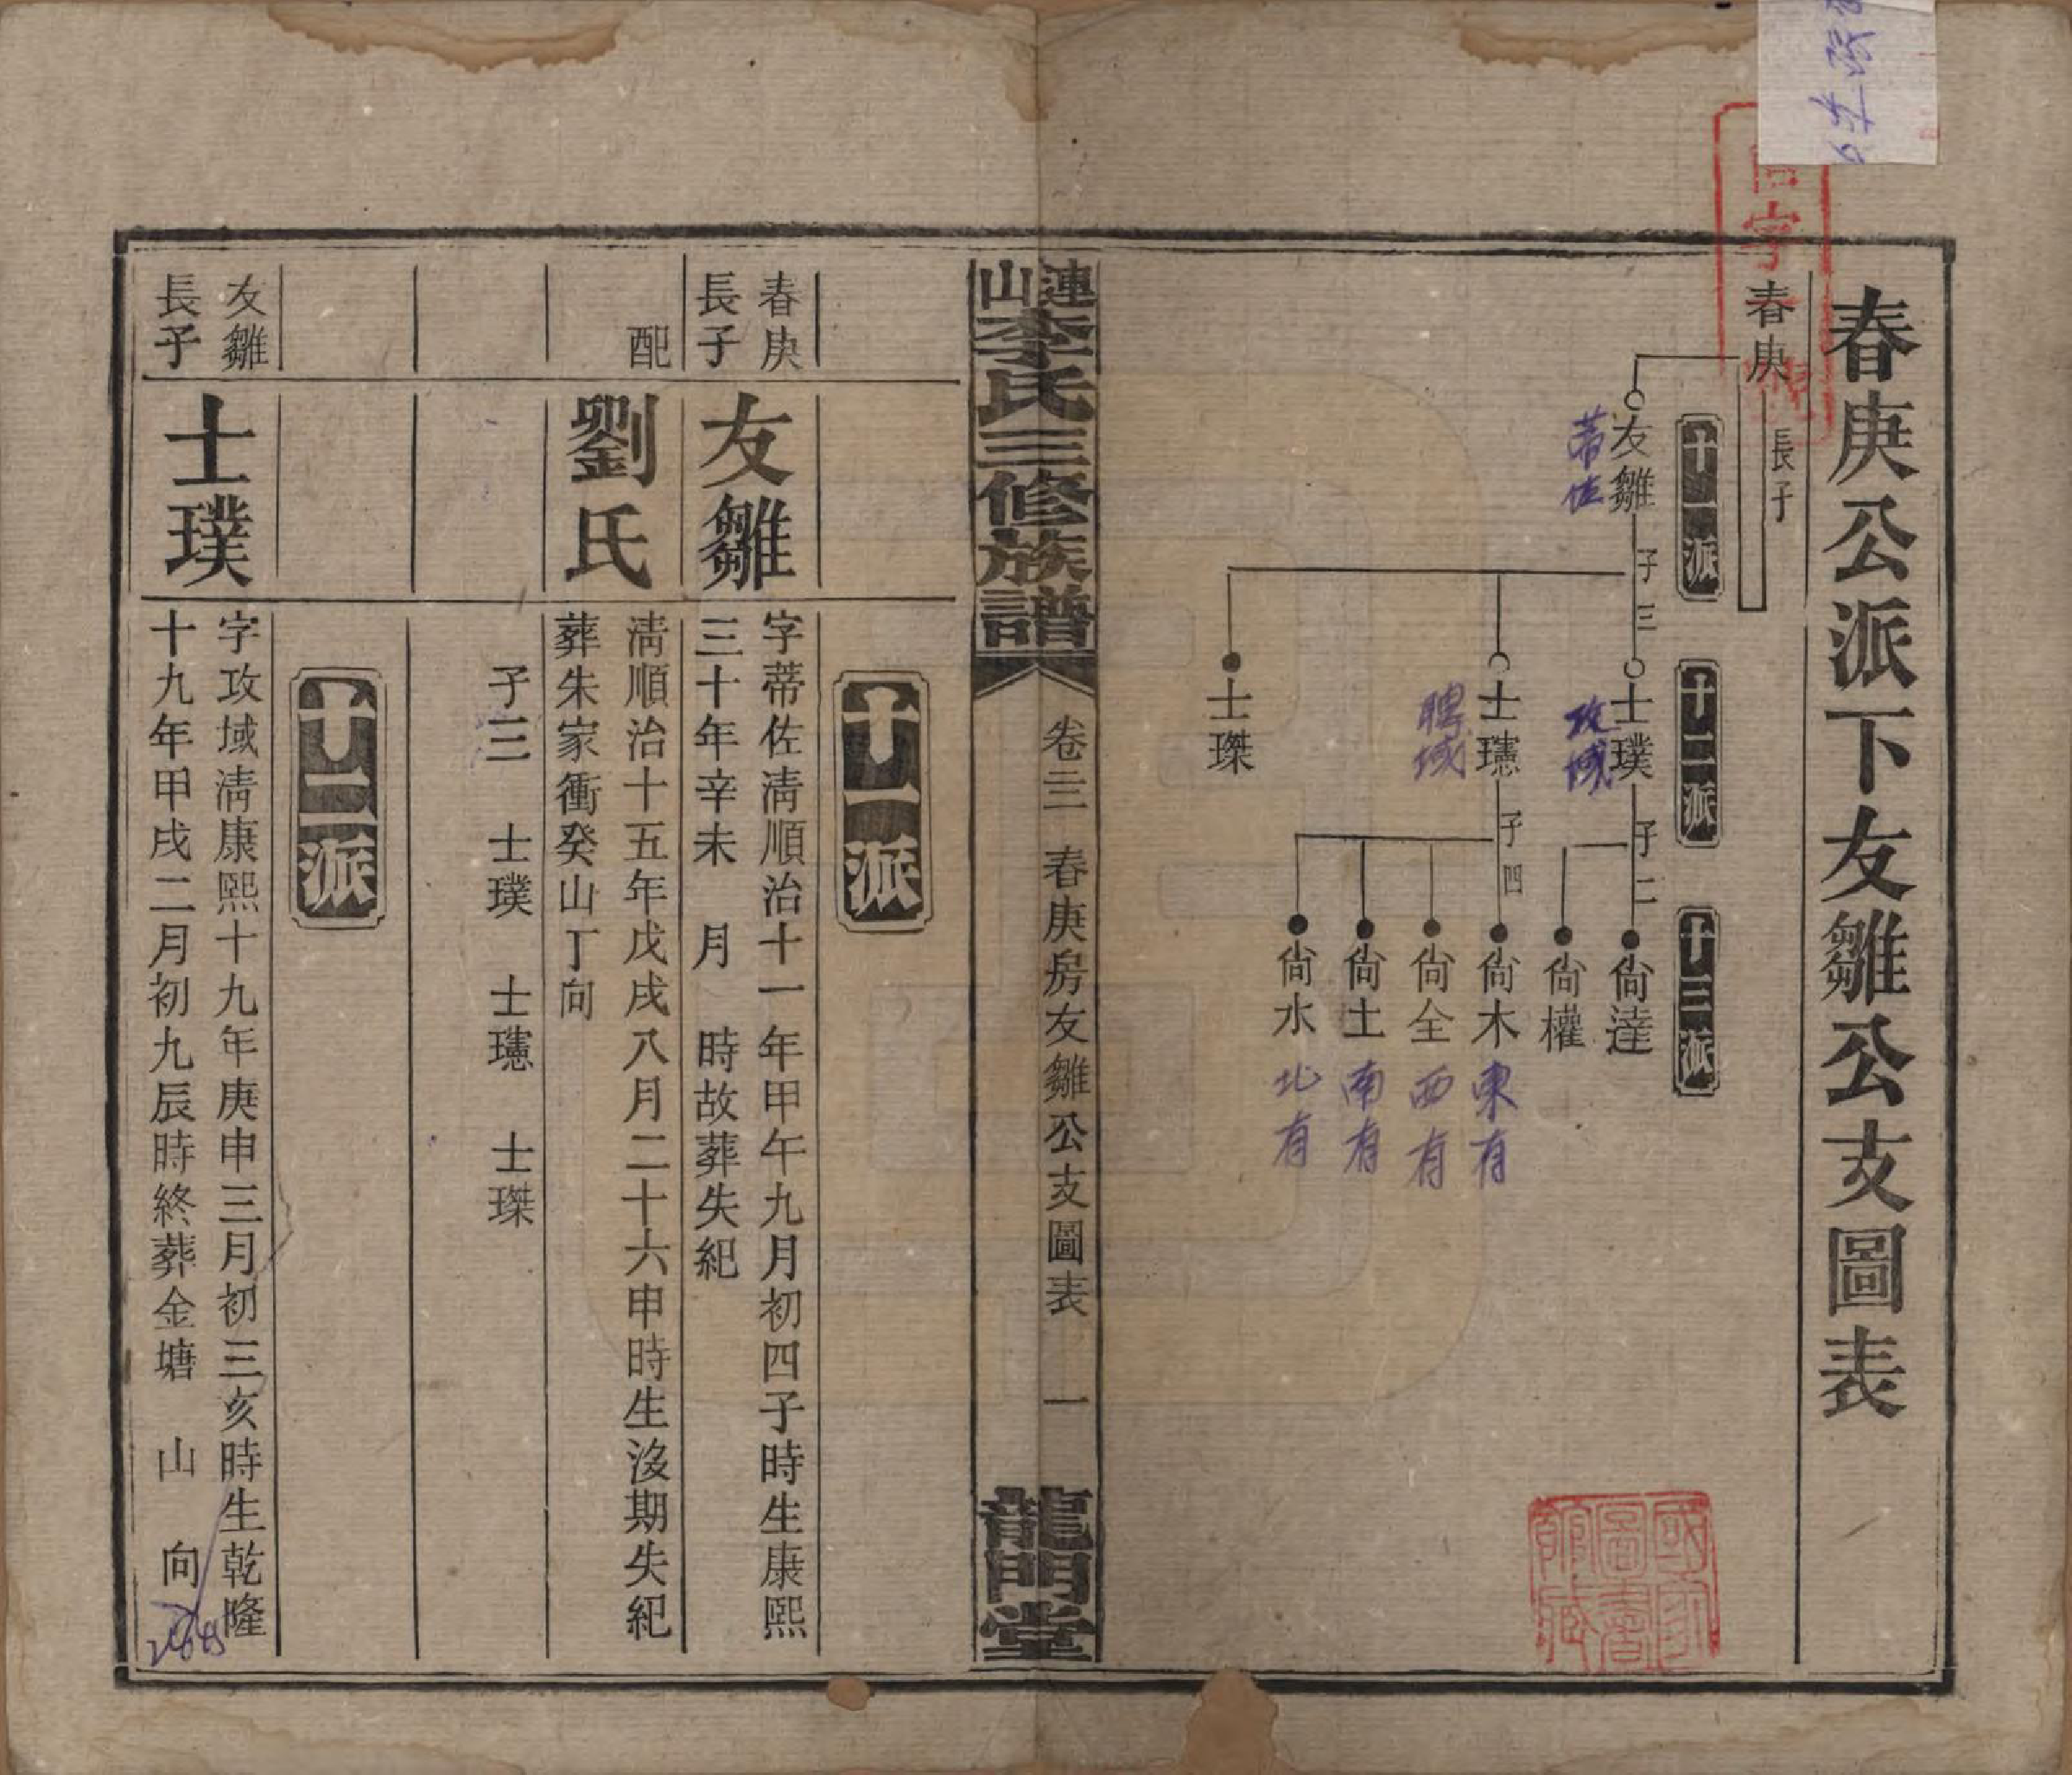 春庚公派下友雛公支圖表
春庚
長子
十一派
十二派
十三派
友雛
蒂佐
子三
士璞
攻域
士璁
聘域
士璨
子二
子四
尙達
尙權
尙木
東有
尙全
西有
尙土
南有
尙水
北有
國家圖書館藏
漣山李氏三修族譜
卷三
春庚房友雛公支圖表
一
龍門堂
十一派
春庚長子
友雛
字蒂佐淸順治十一年甲午九月初四子時生康熙
三十年辛未 月 時故葬失紀
配
劉氏
淸順治十五年戊戌八月二十六申時生沒期失紀
葬朱家衝癸山丁向
子三 士璞 士璁 士璨
十二派
友雛長子
士璞
字攻域淸康熙十九年庚申三月初三亥時生乾隆
十九年甲戌二月初九辰時終葬金塘 山 向